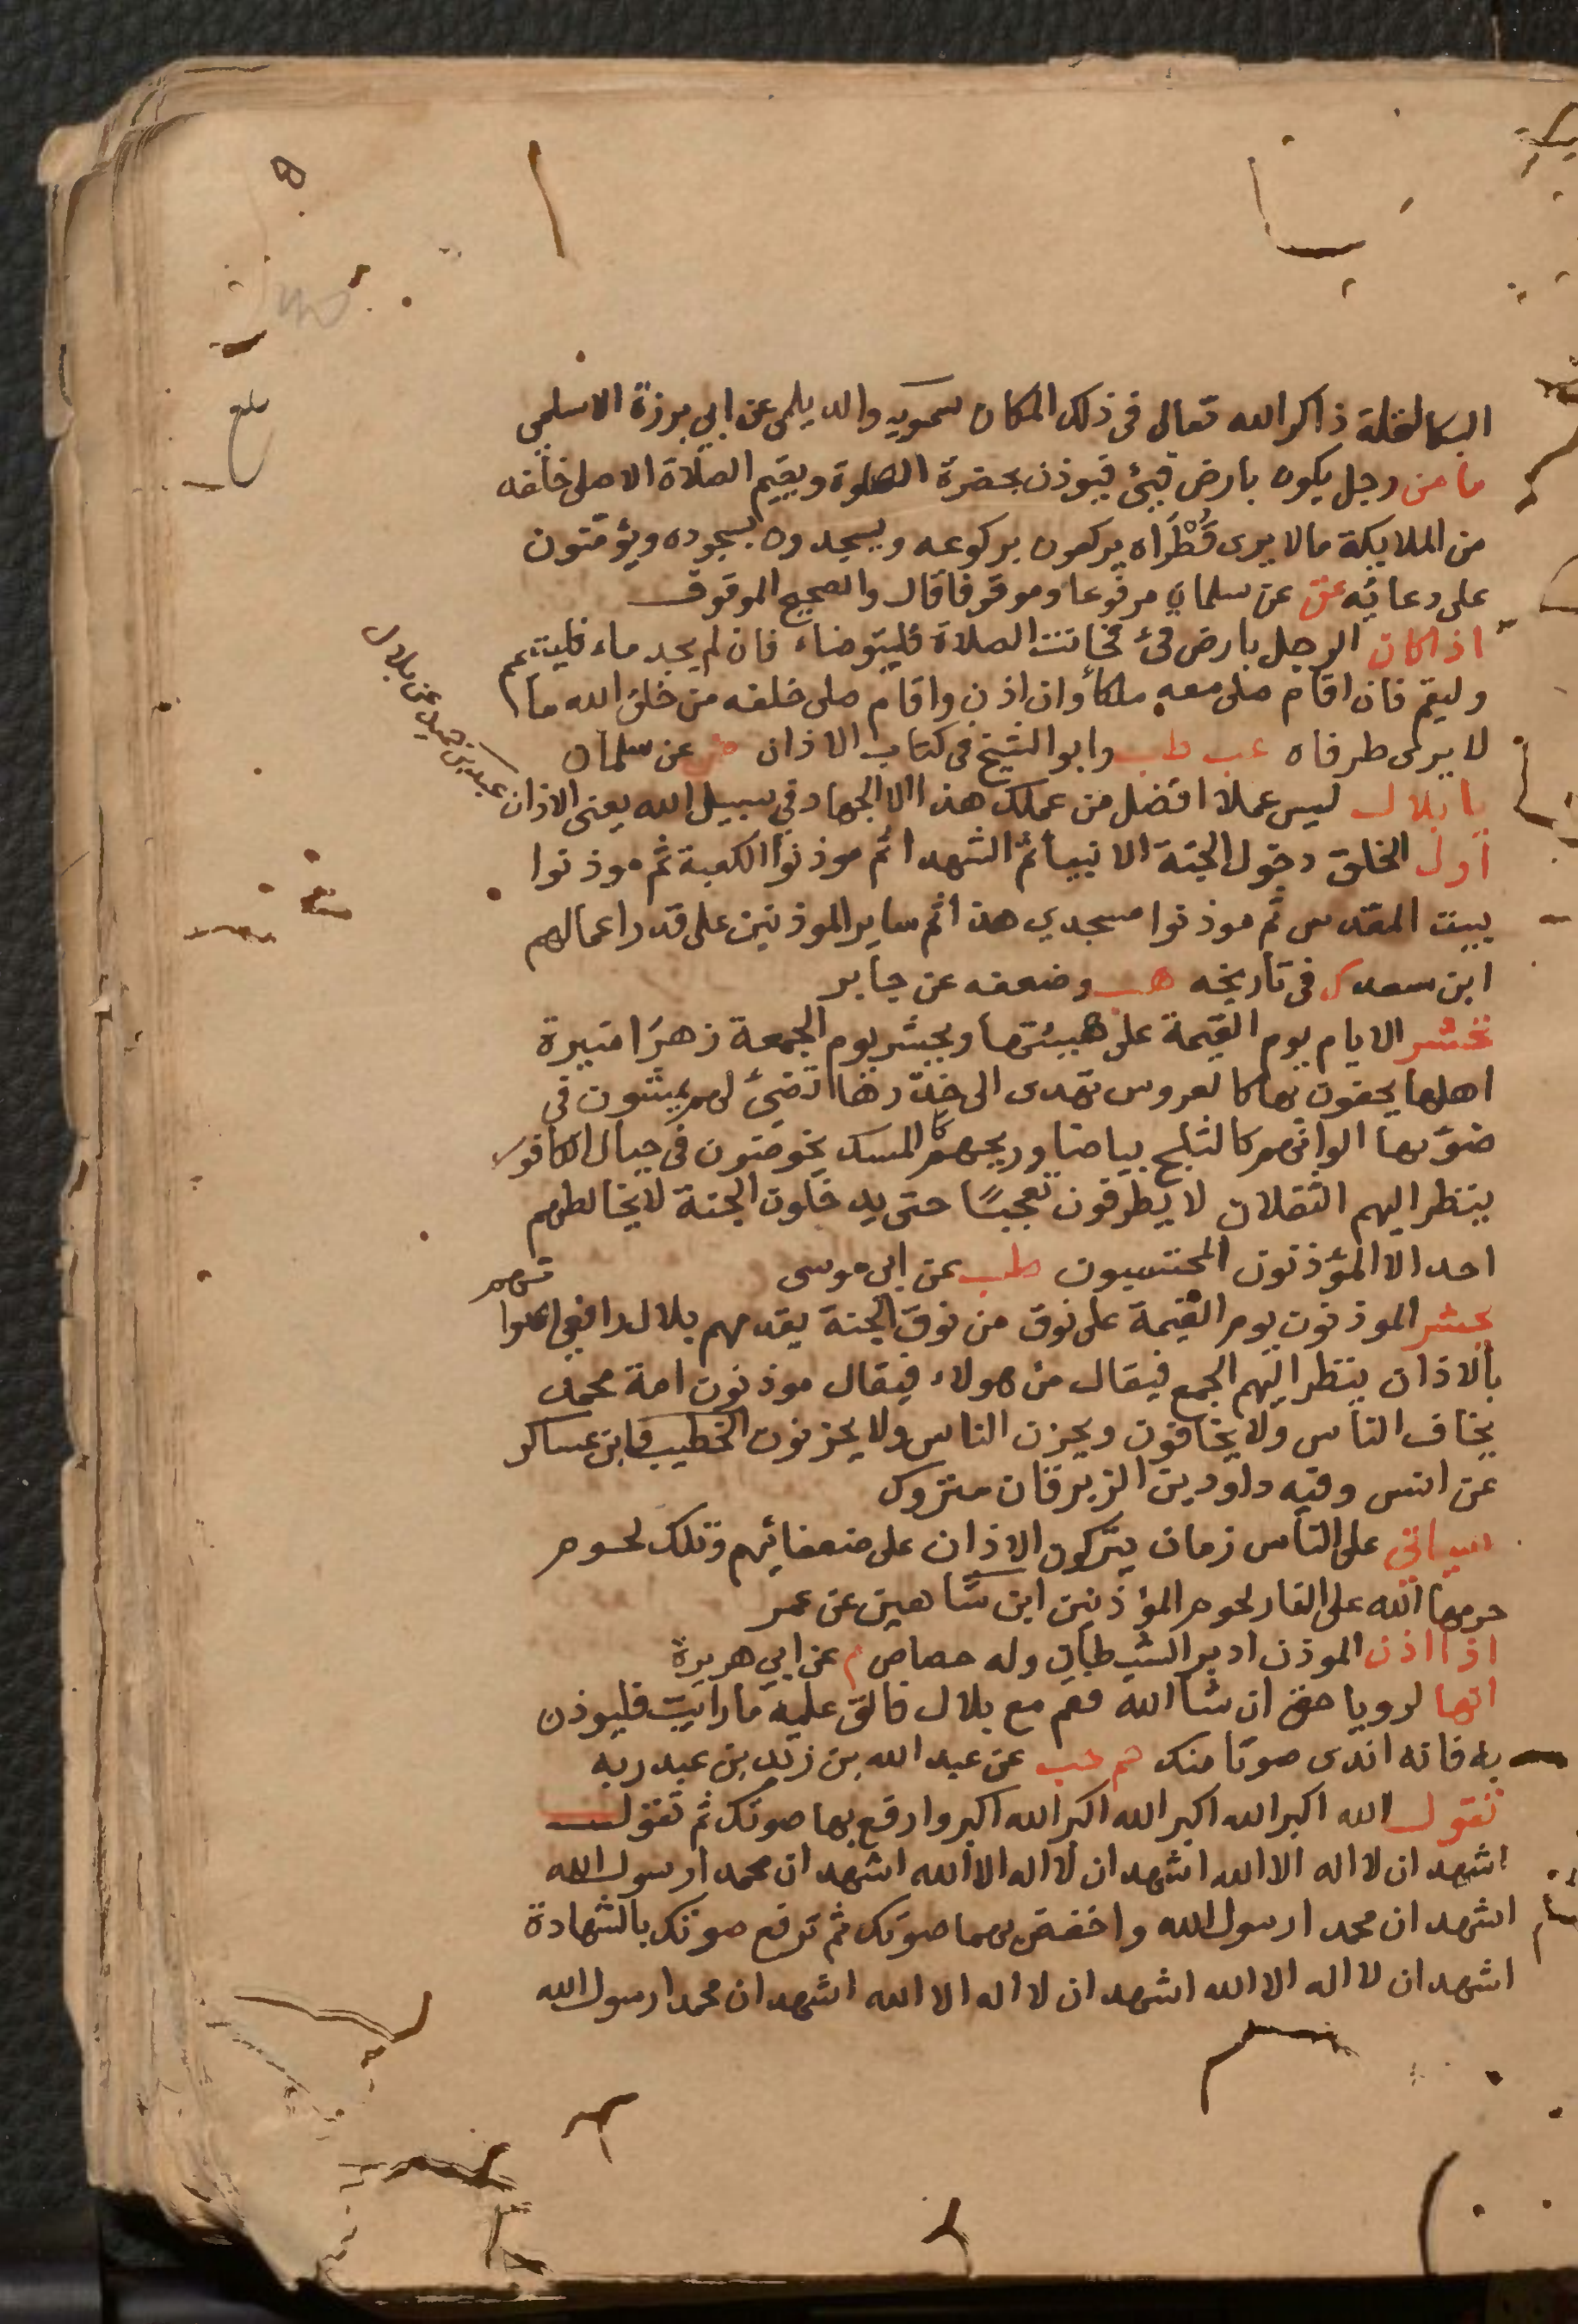 البكا لغلة ذاكر الله تعالى فى ذلك المكان سمويه والديلمى عن ابي برزة الاسلمي
ما من رجل يكون بارض قيئ فيوذن بحضرة الصلوة ويقيم الصلاة الا صلى خلفه
من الملايكة ما لا يرى قُطْرَاه يركعون بركوعه ويسجدون بسجوده ويؤمنون
على دعائه عن سلمان مرفوعا وموقوفا قال والصحيح الموقوف
اذا كان الرجل بارض قئ فحانت الصلاة فليتوضاء فان لم يجد ماء فليتيمم
وليقم فان اقام صلى معه ملكاً وان اذن واقام صلى خلفه من خلق الله ما
لا يرى طرفاه عب طب وابو الشيخ فى كتاب الاذان ض عن سلمان
يا بلال ليس عملا افضل من عملك هذا الا الجهاد في سبيل الله يعنى الاذان
عبد بن حميد عن بلال
اول الخلق دخول الجنة الانبيا ثم الشهدا ثم موذنوا الكعبة ثم موذنوا
بيت المقدس ثم موذنوا مسجدي هذا ثم ساير الموذنين على قدر اعمالهم
ابن سعد ك فى تاريخه هب وضعفه عن جابر
تحشر الايام يوم القيمة على هييئتها ويحشر يوم الجمعة زهرًا منيرة
اهلها يحفون بها كالعروس تهدى الى خدرها تضيئ لهم يمشون فى
ضوئها الوانهم كالثلج بياضا وريحهم كالمسك يخوضون فى جبال الكافور
ينظر اليهم الثقلان لا يطرفون تعجبًا حتى يدخلون الجنة لا يخالطهم
احد الا المؤذنون المحتسبون طب عن ابى موسى
يحشر الموذنون يوم القيمة على نوق من نوق الجنة يقدمهم بلال رافعى اصوا
تهم
بالاذان ينظر اليهم الجمع فيقال من هولاء فيقال موذنون امة محمد
يخاف الناس ولا يخافون ويحزن الناس ولا يحزنون الخطيب وابن عساكر
عن انس وفيه داود بن الزبرقان متروك
سياتي على الناس زمان يتركون الاذان على ضعفائهم وتلك لحوم
حرمها الله على النار لحوم المؤذنين ابن شاهين عن عمر
اذا اذن الموذن ادبر الشيطان وله حصاص م عن ابي هريرة
انها لرويا حق ان شا الله فقم مع بلال فالق عليه ما رايت فليوذن
به فانه اندى صوتا منك حم حب عن عبد الله بن زيد بن عبد ربه
تقول الله اكبر الله اكبر الله اكبر الله اكبر وارفع بها صوتك ثم تقول
اشهد ان لا اله الا الله اشهد ان لا اله الا الله اشهد ان محمدا رسول الله
اشهد ان محمدا رسول الله واخفض بهما صوتك ثم ترفع صوتك بالشهادة
اشهد ان لا اله الا الله اشهد ان لا اله الا الله اشهد ان محمدا رسول الله